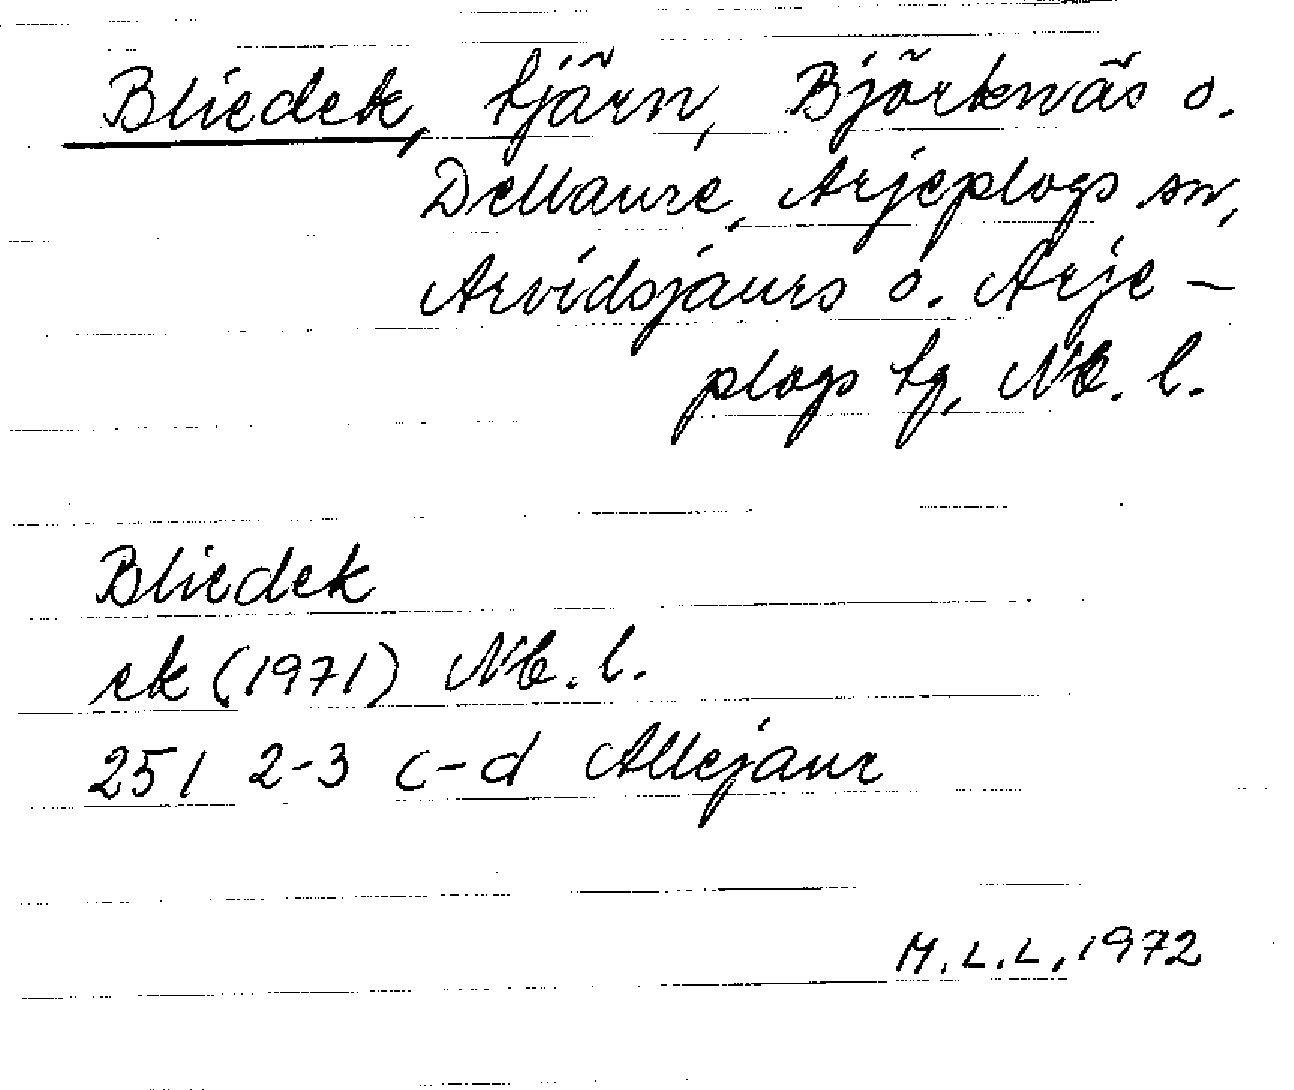 Bliedek, tjärn, Björknäs o.
Dellaure, Arjeplogs sn,
Arvidsjaurs o. Arje-
plogs tg, Nb. l.
Bliedek
ek (1971) Nb. l.
251 2-3 c-d Allejaur
M.L.L, 1972